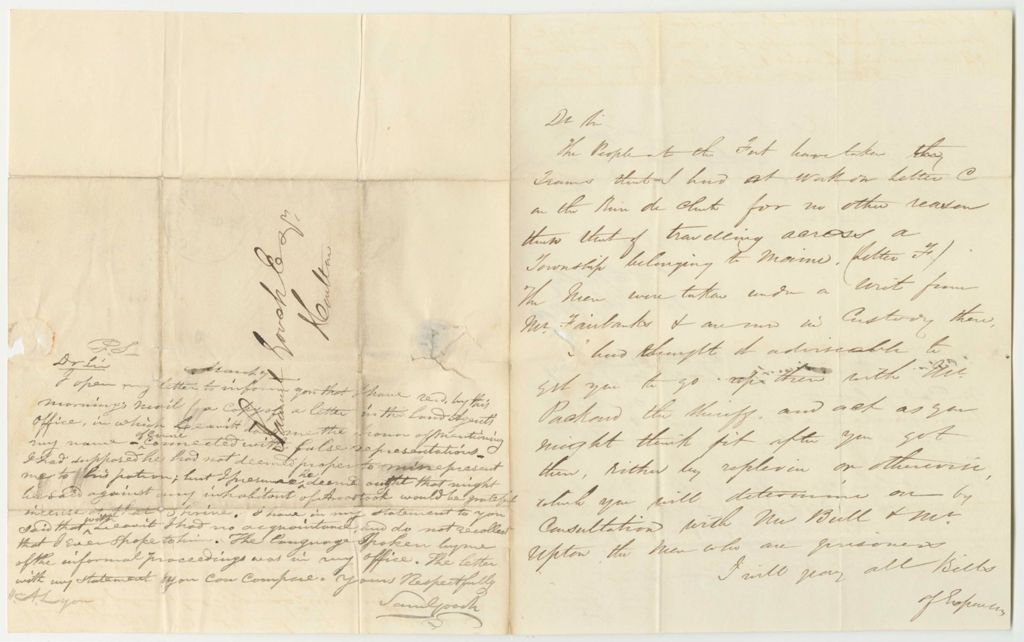 Samuel Gooch Esqr
Houlton
P.S.
Dr Sir
I open my letter to inform you that I have recd by this
morning's mail a copy of a letter in the Land Agents
Office, in which Leavitt me the honor of mentioning
my name connected with false representations.
of mine
I had supposed he had not deemed proper to misrepresent
me to his patron; but I presume deemd aught that might
be said against any inhabitant of Aroostook would be grateful
incense at that Shrine. I have in my statement to you
said that with Leavitt I had no acquaintance and do not recollect
that I ever spoke to him. The language spoken by me
of the informal proceedings was in my office. The letter
with my statement you can compare. Yours Respectfully
Saml Gooch
Dr Sir
The People at the Fort have taken the
Teams that I had at work on Letter C
on the River de Chute for no other reason
than that of travelling across a
Township belonging to Maine. (Letter F)
The Men were taken under a writ from
Mr. Fairbanks & are now in Custody there.
I had thought it adviseable to
get you to go up there with Mr.
Packard the Sheriff, and act as you
might think fit after you got
there, Either by replevin or otherwise
which you will determine on by
Consultation with Mr Bull & Mr.
Upton the Men who are prisoners
I will pay all Bills
of Expences